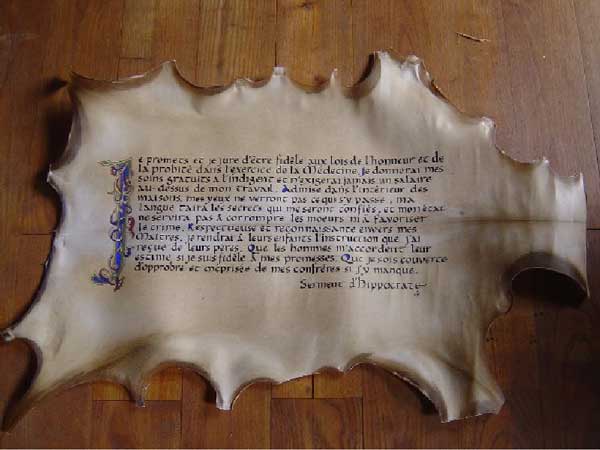 Je promets et je jure d'être fidèle aux lois de l'honneur et de
la probité dans l'exercice de la Médecine. Je donnerai mes
soins gratuits à l'indigent et n'exigerai jamais un salaire
au-dessus de mon travail. Admise dans l'intérieur des
maisons, mes yeux ne verront pas ce qui s'y passe, ma
langue taira les secrets qui me seront confiés, et mon état
ne servira pas à corrompre les moeurs ni à favoriser
le crime. Respectueuse et reconnaissante envers mes
Maîtres, je rendrai à leurs enfants l'instruction que j'ai
reçue de leurs pères. Que les hommes m'accordent leur
estime si je suis fidèle à mes promesses. Que je sois couverte
d'opprobre et méprisée de mes confrères si j'y manque.
Serment d'Hippocrate